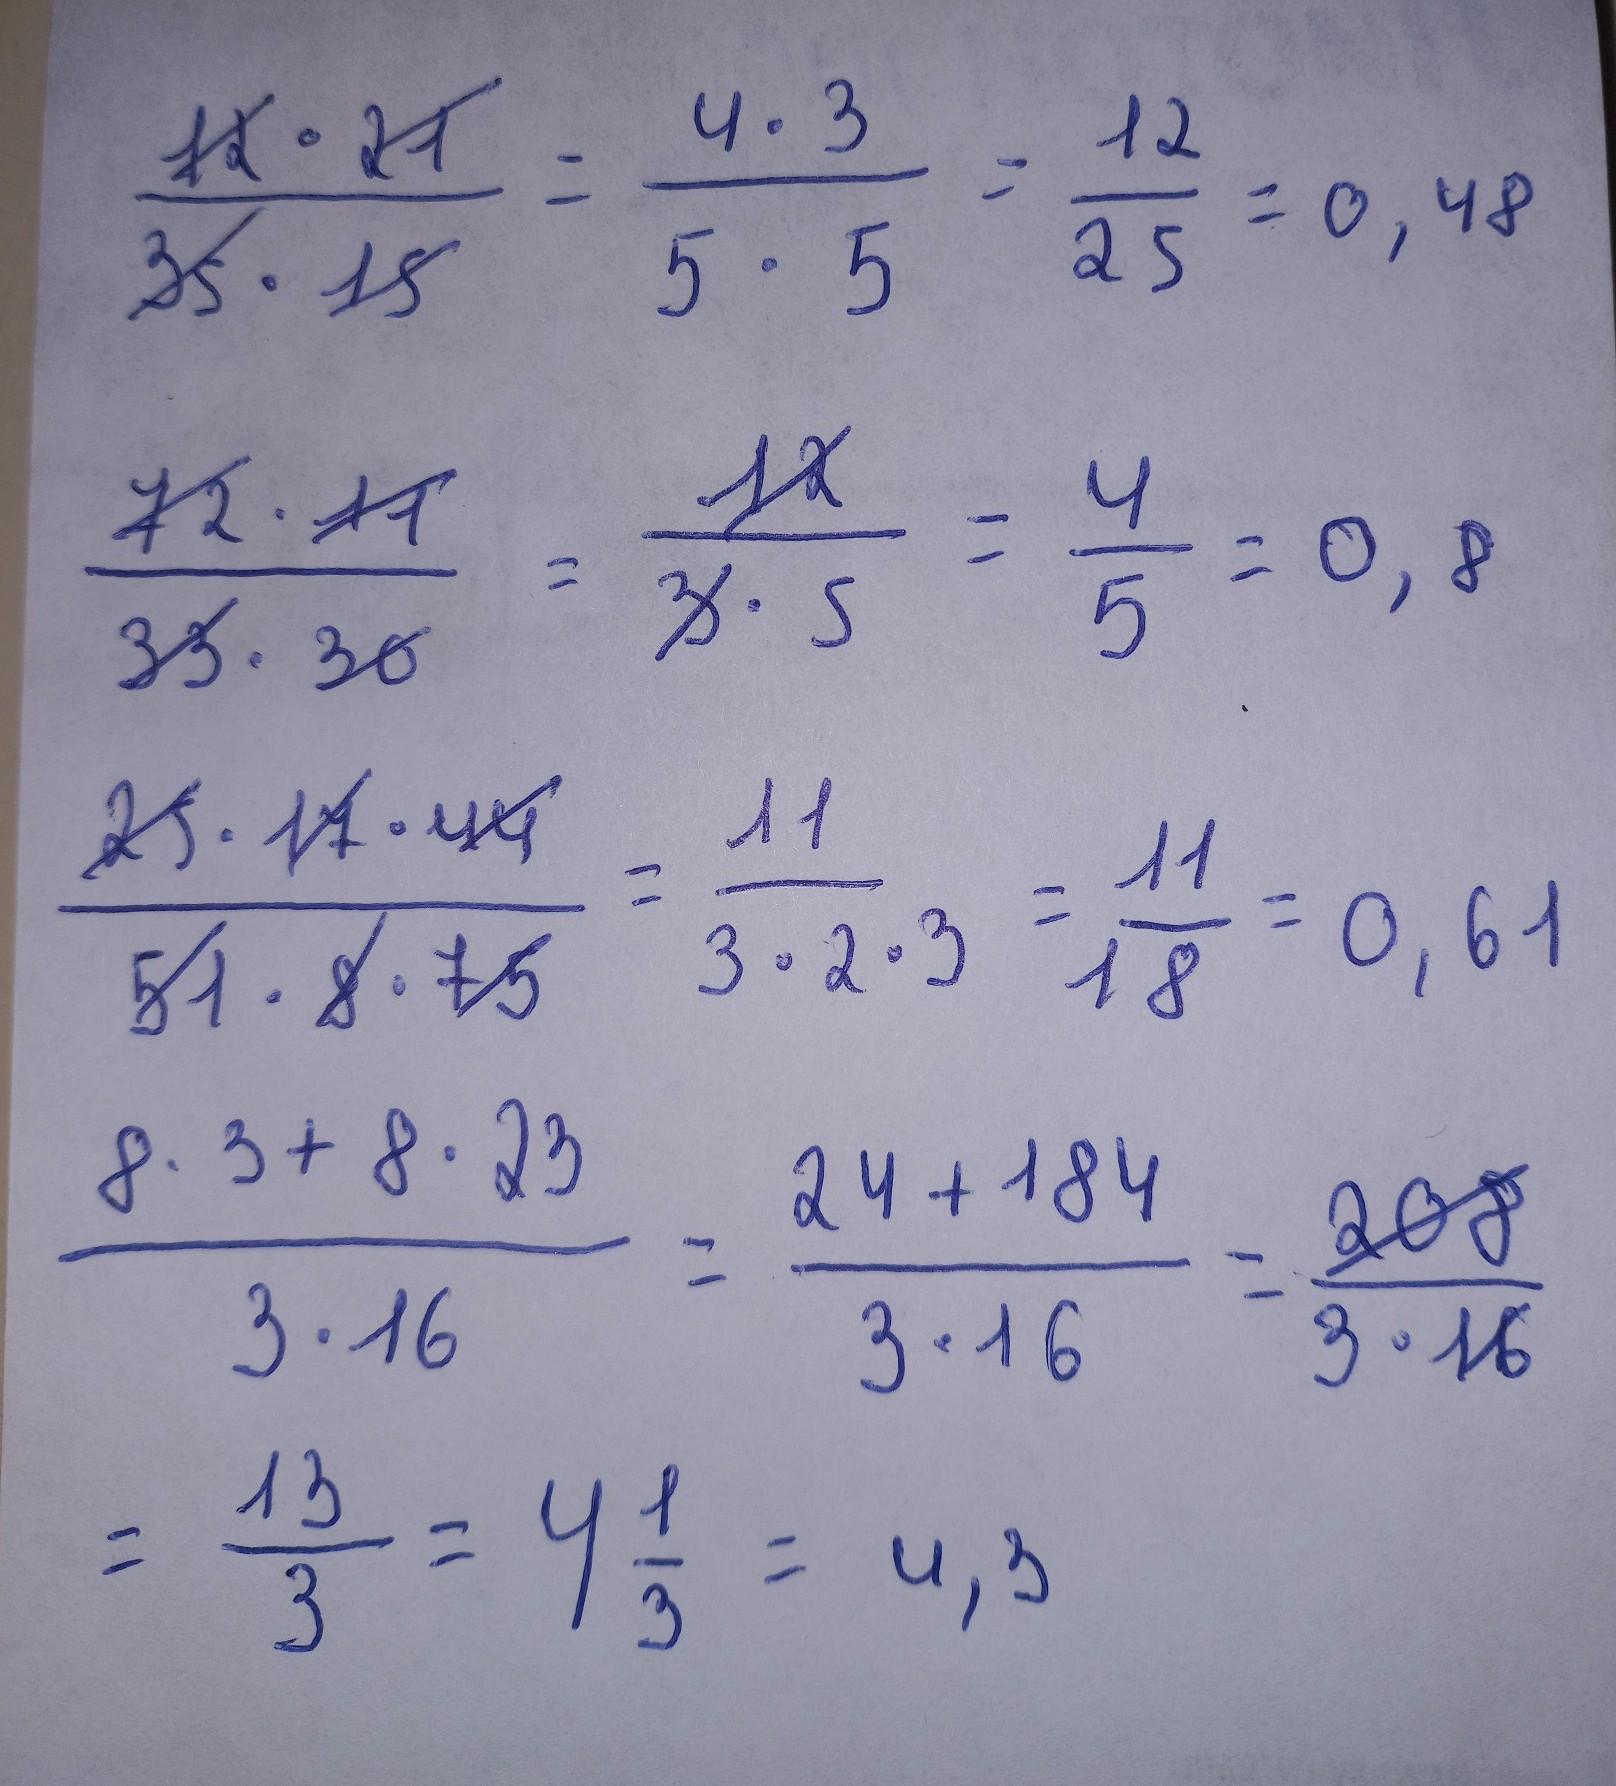 12 · 21 / 35 · 15 = 4 · 3 / 5 · 5 = 12 / 25 = 0,48
72 · 11 / 33 · 30 = 12 / 3 · 5 = 4 / 5 = 0,8
25 · 17 · 44 / 51 · 8 · 75 = 11 / 3 · 2 · 3 = 11 / 18 = 0,61
8 · 3 + 8 · 23 / 3 · 16 = 24 + 184 / 3 · 16 = 208 / 3 · 16
= 13 / 3 = 4 1/3 = 4,3